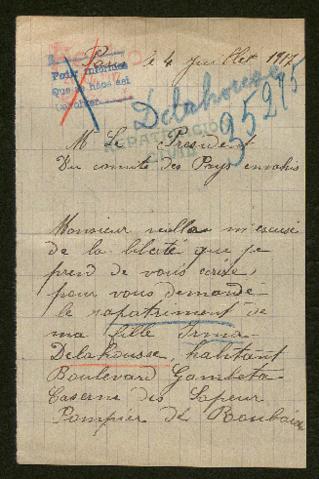 Paris le 4 Juillet 1917
Delahousse
35295
Mr Le Président
Du comité des Pays envahis
Monsieur veillez m'excusé
de la liberté que je
prend de vous écrire,
pour vous demandé
le rapatriment de
ma fille Irma
Delahousse, habitant
Boulevard Gambeta
Caserne des Sapeur
Pompier de Roubaix